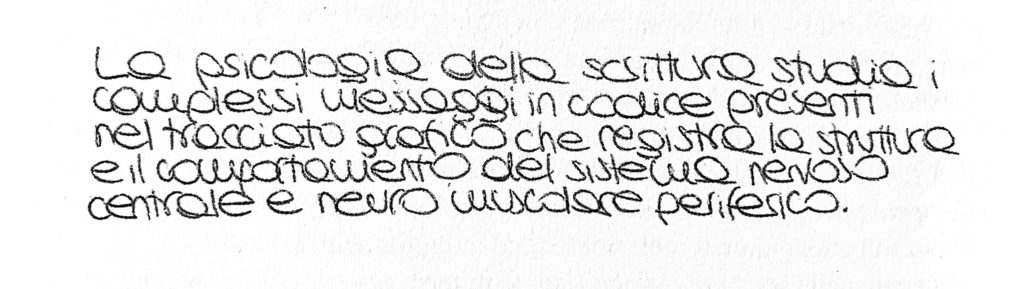 La psicologia della scrittura studia i
complessi messaggi in codice presenti
nel tracciato grafico che registra la struttura
e il comportamento del sistema nervoso
centrale e neuro muscolare periferico.